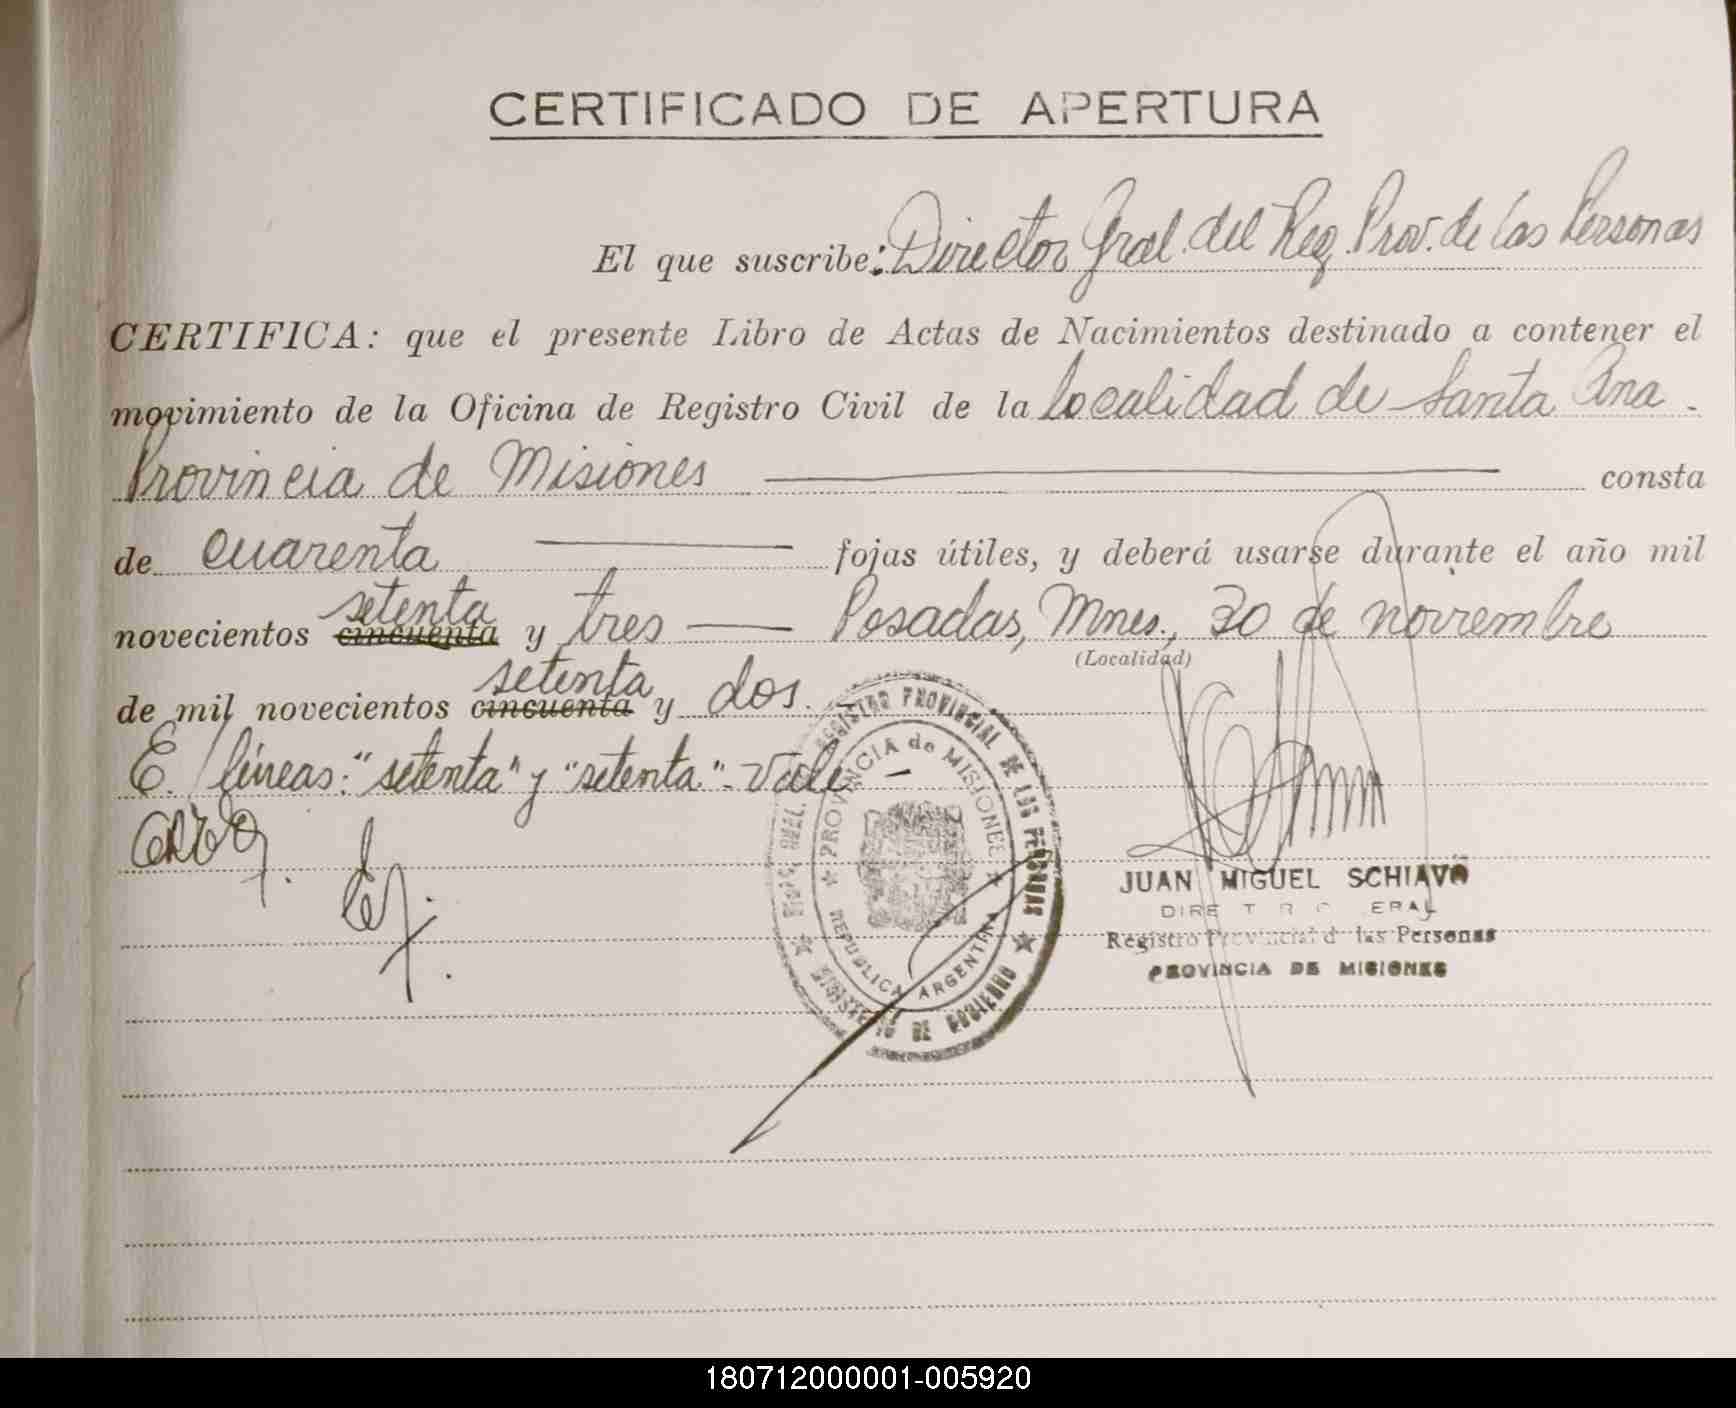 CERTIFICADO DE APERTURA
El que suscribe: Director Gral. del Reg. Prov. de las Personas
CERTIFICA: que el presente Libro de Actas de Nacimientos destinado a contener el
movimiento de la Oficina de Registro Civil de la localidad de Santa Ana -
Provincia de Misiones consta
de cuarenta fojas útiles, y deberá usarse durante el año mil
setenta
novecientos cincuenta y tres — Posadas, Mnes., 30 de noviembre
(Localidad)
setenta
de mil novecientos cincuenta y dos.
E. / líneas: "setenta" y "setenta" - Vale -
REGISTRO PROVINCIAL DE LAS PERSONAS
PROVINCIA de MISIONES
REPUBLICA ARGENTINA
MINISTERIO DE GOBIERNO
JUAN MIGUEL SCHIAVO
DIRECTOR GENERAL
Registro Provincial de las Personas
PROVINCIA DE MISIONES
180712000001-005920